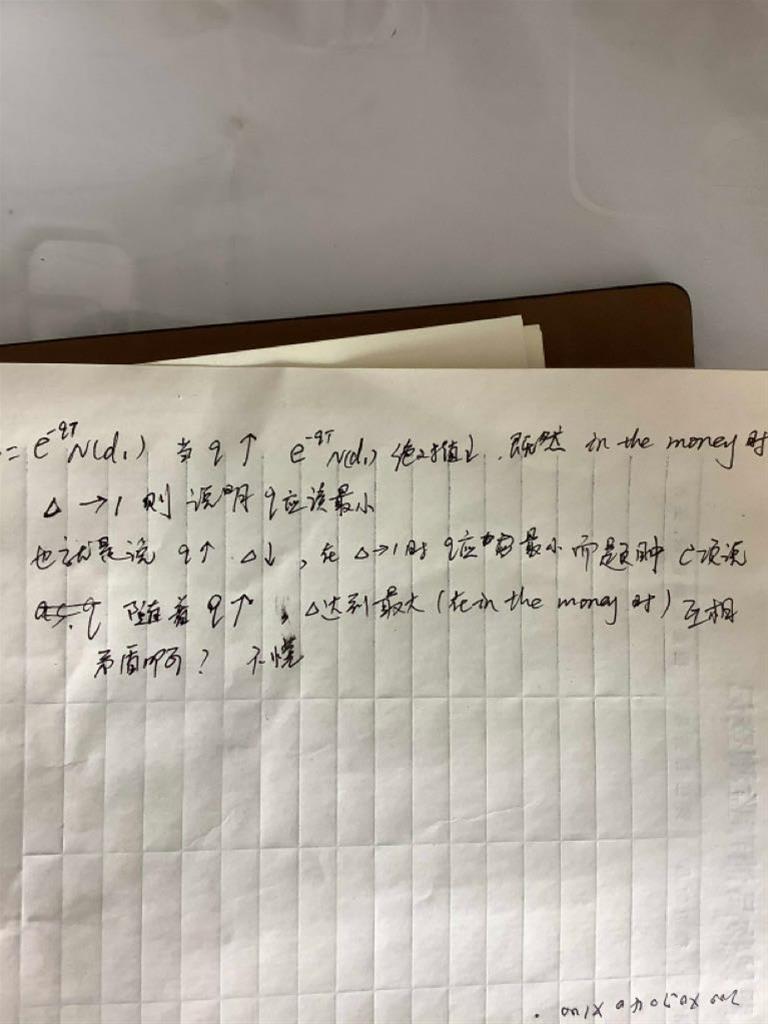 = e^{-qT} N(d₁) 当 q↑ e^{-qT} N(d₁) 绝对值↓. 既然 in the money 时
Δ →1 则 说明 q应该最小
也就是说 q↑ Δ↓, 在 Δ→1时 q应该最小 而题肿 C项说
q 随着 q↑, Δ达到最大 (在in the money 时) 互相
矛盾啊? 不懂